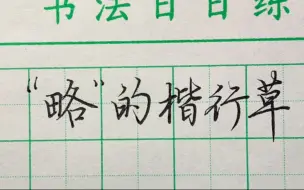 书法日日练
“略”的楷行草